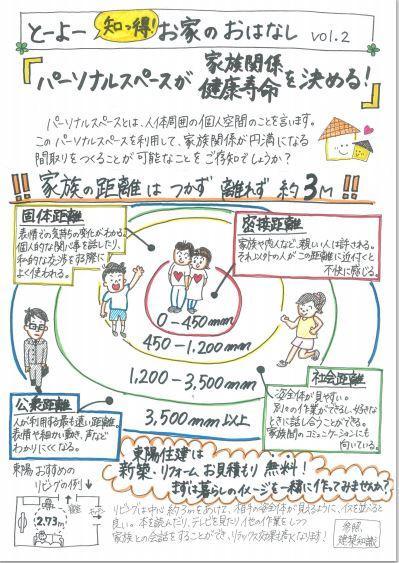 とーよー 知っ得! お家のおはなし vol.2
『パーソナルスペースが 家族関係 健康寿命 を決める!』
パーソナルスペースとは、人体周囲の個人空間のことを言います。
このパーソナルスペースを利用して、家族関係が円満になる
間取りをつくることが可能なことをご存知でしょうか?
!!家族の距離はつかず離れず約3M!!
固体距離
表情での気持ちの変化がわかる。
個人的な関心事を話したり、
私的な交渉をする際に
よく使われる。
密接距離
家族や恋人など、親しい人は許される。
それ以外の人がこの距離に近付くと
不快に感じる。
0-450mm
450-1,200mm
1,200-3,500mm
3,500mm以上
公衆距離
人が利用する最も遠い距離。
表情や細かい動き、声など
わかりにくくなる。
社会距離
姿全体が見やすい。
別々の作業ができるし、好きな
ときに話しあうことができる。
家族間のコミュニケーションにも
向いている。
東陽住建は
新築・リフォームお見積もり無料!
まずは暮らしのイメージを一緒に作ってみませんか?
東陽おすすめの
リビングの例↓
2.73m
リビングは中心約3mをあけて、相手の姿全体が見えるように、イスを並べると
良い。本を読んだり、テレビを見たり他の作業をしつつ
家族との会話をすることができ、リラックス効果も高くなります!
参照
建築知識